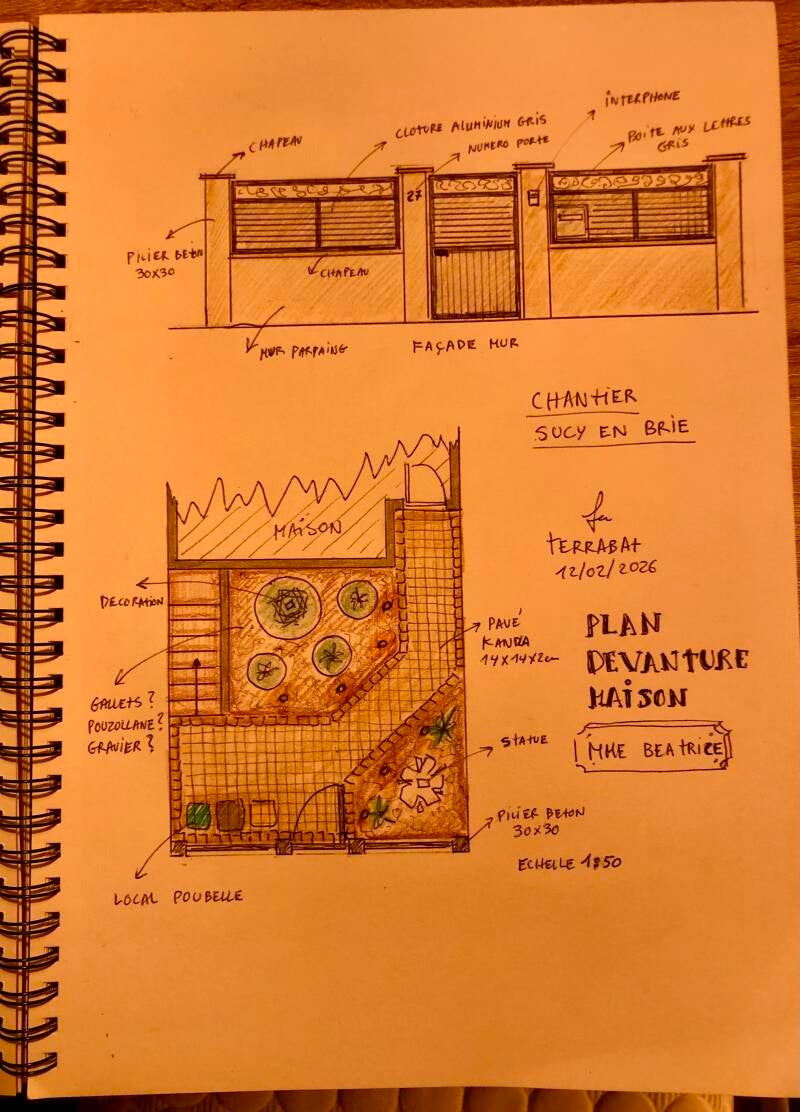 CHAPEAU
CLOTURE ALUMINIUM GRIS
NUMERO PORTE
INTERPHONE
BOITE AUX LETTRES
GRIS
27
PILIER BETON
30X30
CHAPEAU
MUR PARPAING
FAÇADE MUR
CHANTIER
SUCY EN BRIE
MAISON
TERRABAT
12/02/2026
DECORATION
PAVÉ
KANDLA
14X14X2cm
PLAN
DEVANTURE
MAISON
GALLETS ?
POUZOLLANE ?
GRAVIER ?
STATUE
MME BEATRICE
PILIER BETON
30X30
ECHELLE 1$50
LOCAL POUBELLE